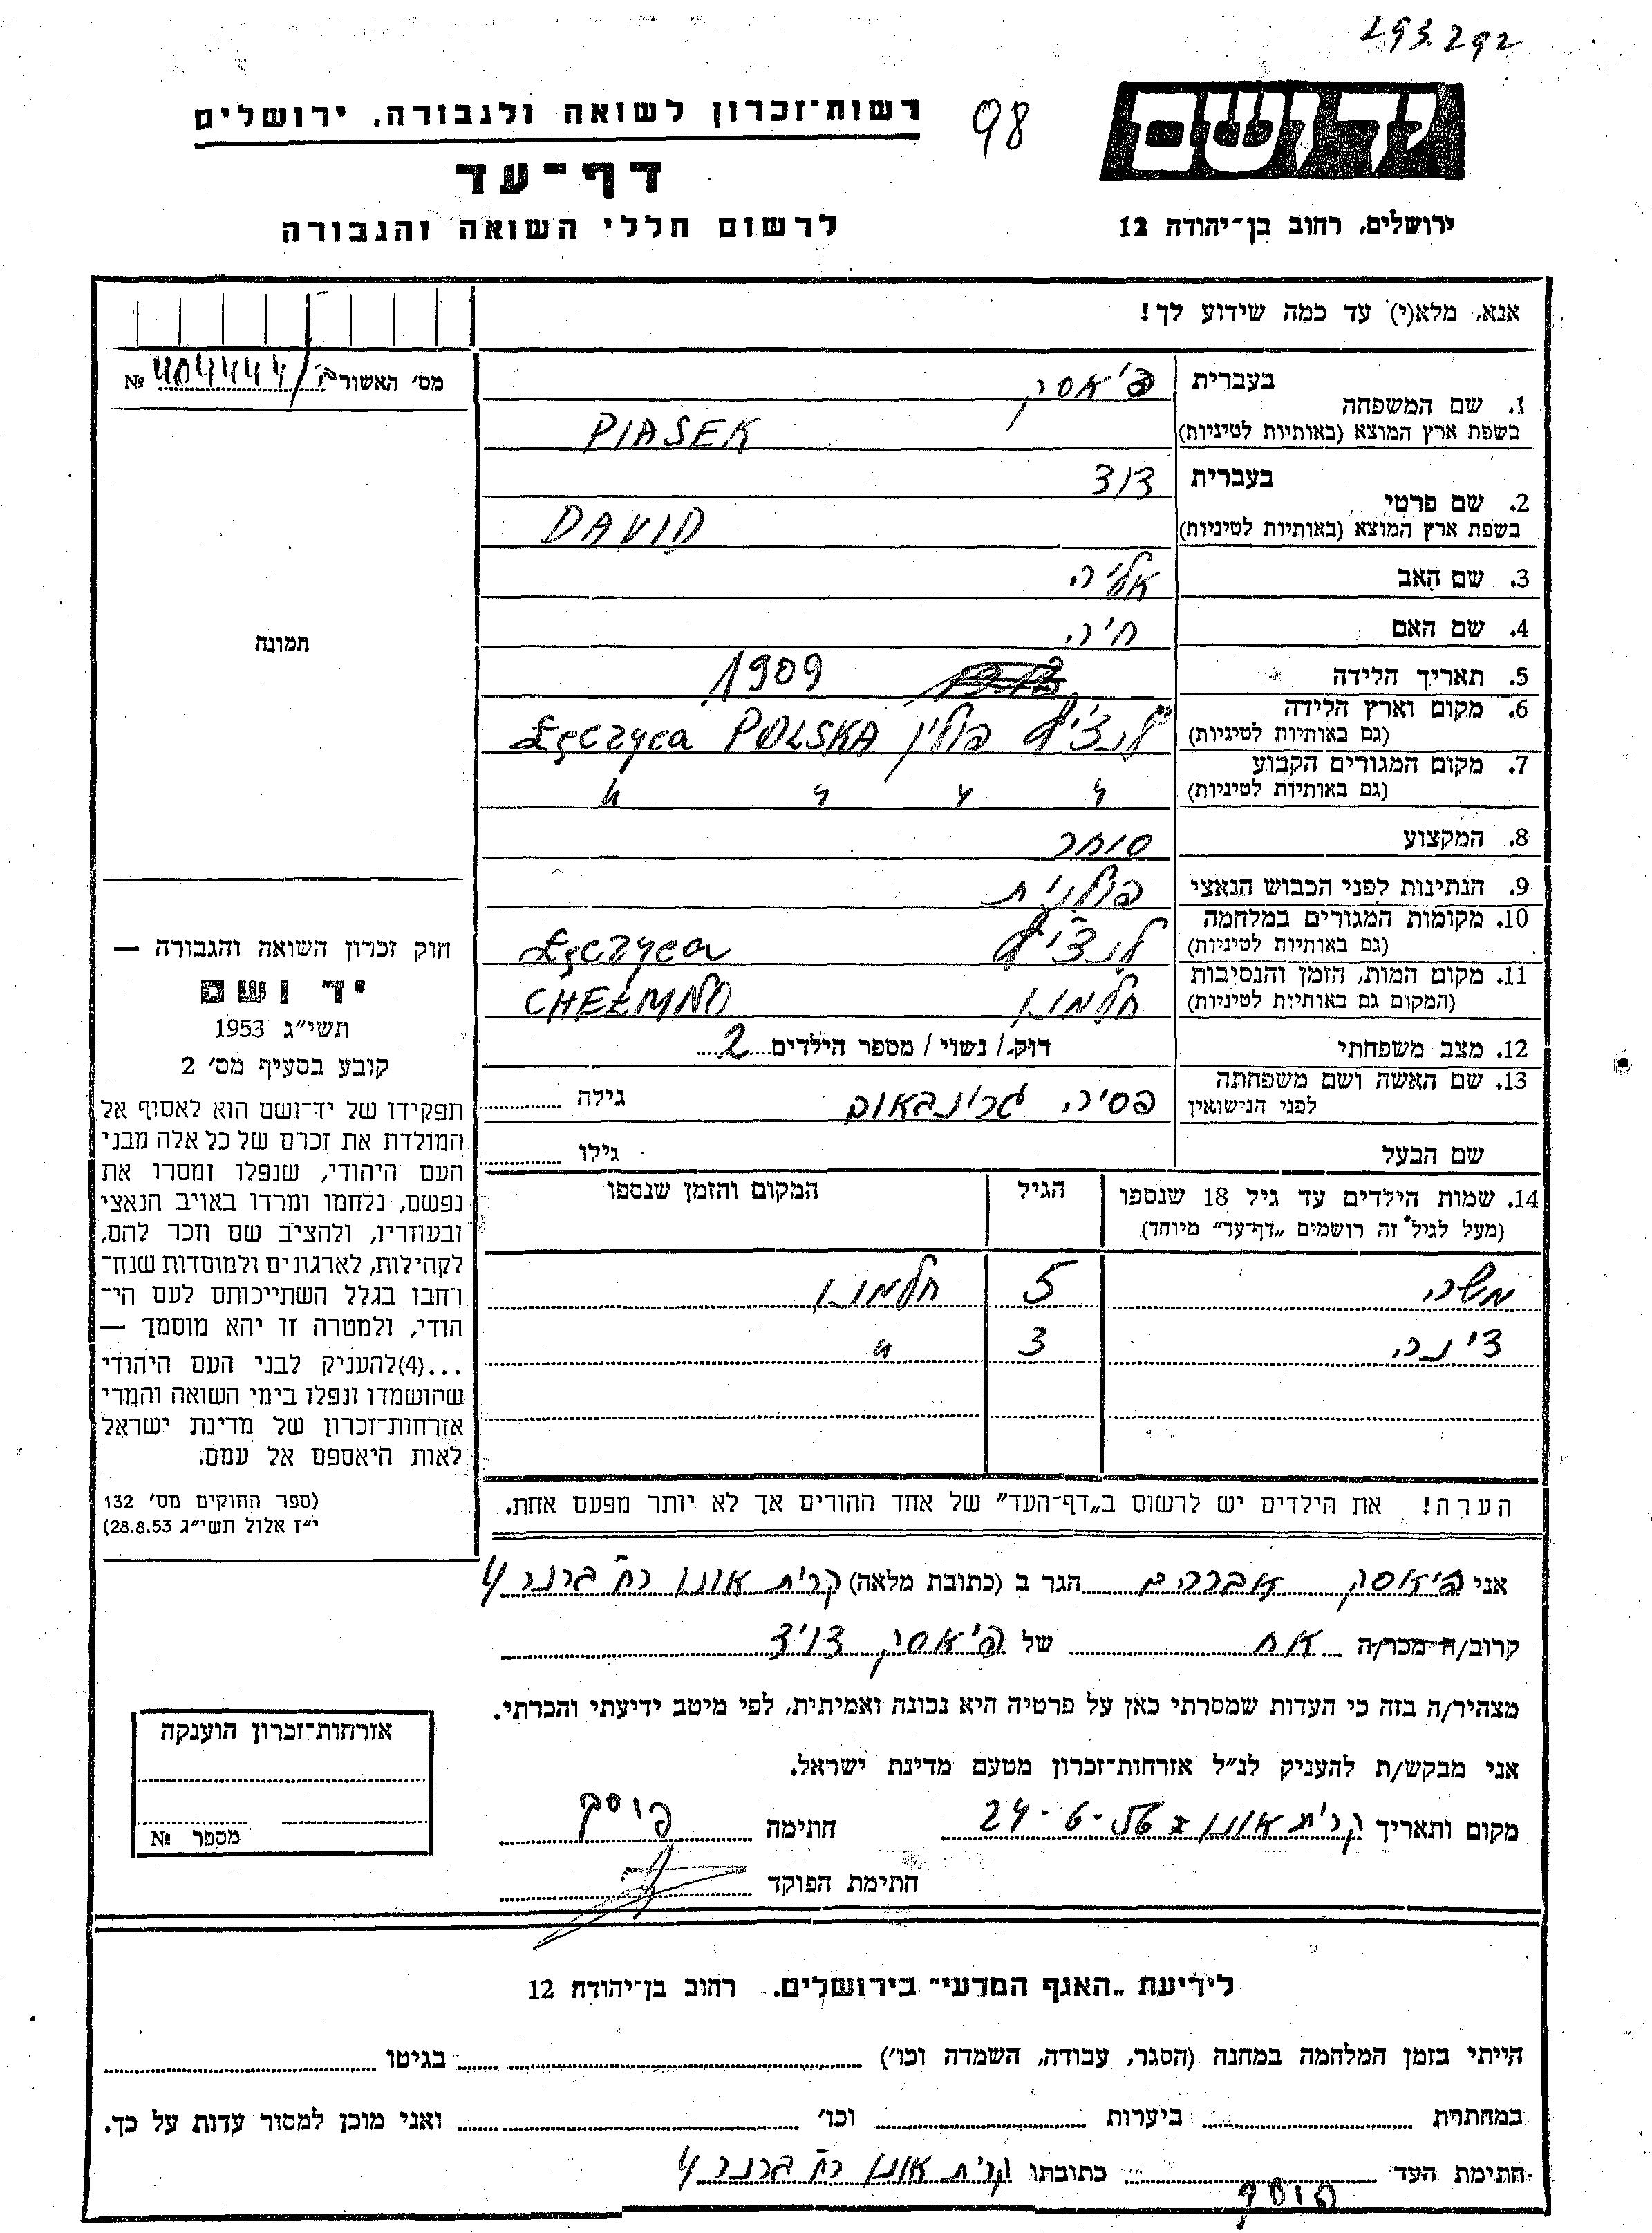 293.292
98
יד ושם
רשות־זכרון לשואה ולגבורה, ירושלים
דף־עד
לרשום חללי השואה והגבורה
ירושלים, רחוב בן־יהודה 12
אנא, מלא(י) עד כמה שידוע לך!
מס׳ האשורה № 404444/
1. שם המשפחה
בעברית פיאסק
בשפת ארץ המוצא (באותיות לטיניות) PIASEK
2. שם פרטי
בעברית דוד
בשפת ארץ המוצא (באותיות לטיניות) DAVID
3. שם האב אליה
4. שם האם חיה
5. תאריך הלידה 1909
6. מקום וארץ הלידה
(גם באותיות לטיניות) לנציץ פולין Łęczyca POLSKA
7. מקום המגורים הקבוע
(גם באותיות לטיניות) " " " "
8. המקצוע סוחר
9. הנתינות לפני הכבוש הנאצי פולנית
10. מקומות המגורים במלחמה
(גם באותיות לטיניות) לנציץ Łęczyca
11. מקום המות, הזמן והנסיבות
(המקום גם באותיות לטיניות) חלמנו CHEŁMNO
12. מצב משפחתי רוק/ נשוי / מספר הילדים 2
13. שם האשה ושם משפחתה
לפני הנישואין פסיה גרינבאום גילה
שם הבעל גילו
14. שמות הילדים עד גיל 18 שנספו הגיל המקום והזמן שנספו
(מעל לגיל זה רושמים „דף־עד" מיוחד)
משה 5 חלמנו
דינה 3 "
הערה! את הילדים יש לרשום ב„דף־העד" של אחד ההורים אך לא יותר מפעם אחת.
תמונה
חוק זכרון השואה והגבורה —
יד ושם
תשי״ג 1953
קובע בסעיף מס׳ 2
תפקידו של יד־ושם הוא לאסוף אל
המולדת את זכרם של כל אלה מבני
העם היהודי, שנפלו ומסרו את
נפשם, נלחמו ומרדו באויב הנאצי
ובעוזריו, ולהציב שם וזכר להם,
לקהילות, לארגונים ולמוסדות שנח־
רבו בגלל השתייכותם לעם הי־
הודי, ולמטרה זו יהא מוסמך —
...(4)להעניק לבני העם היהודי
שהושמדו ונפלו בימי השואה והמרי
אזרחות־זכרון של מדינת ישראל
לאות היאספם אל עמם.
(ספר החוקים מס׳ 132
י״ז אלול תשי״ג 28.8.53)
אני פיאסק אברהם הגר ב (כתובת מלאה) קרית אונו רח׳ ברנר 4
קרוב/ה מכר/ה אח של פיאסק דויד
מצהיר/ה בזה כי העדות שמסרתי כאן על פרטיה היא נכונה ואמיתית, לפי מיטב ידיעתי והכרתי.
אני מבקש/ת להעניק לנ״ל אזרחות־זכרון מטעם מדינת ישראל.
מקום ותאריך קרית אונו 24-6-56 חתימה
חתימת הפוקד
אזרחות־זכרון הוענקה
מספר №
לידיעת „האגף המדעי" בירושלים. רחוב בן־יהודה 12
הייתי בזמן המלחמה במחנה (הסגר, עבודה, השמדה וכו׳) בגיטו
במחתרת ביערות וכו׳ ואני מוכן למסור עדות על כך.
חתימת העד כתובתו קרית אונו רח׳ ברנר 4